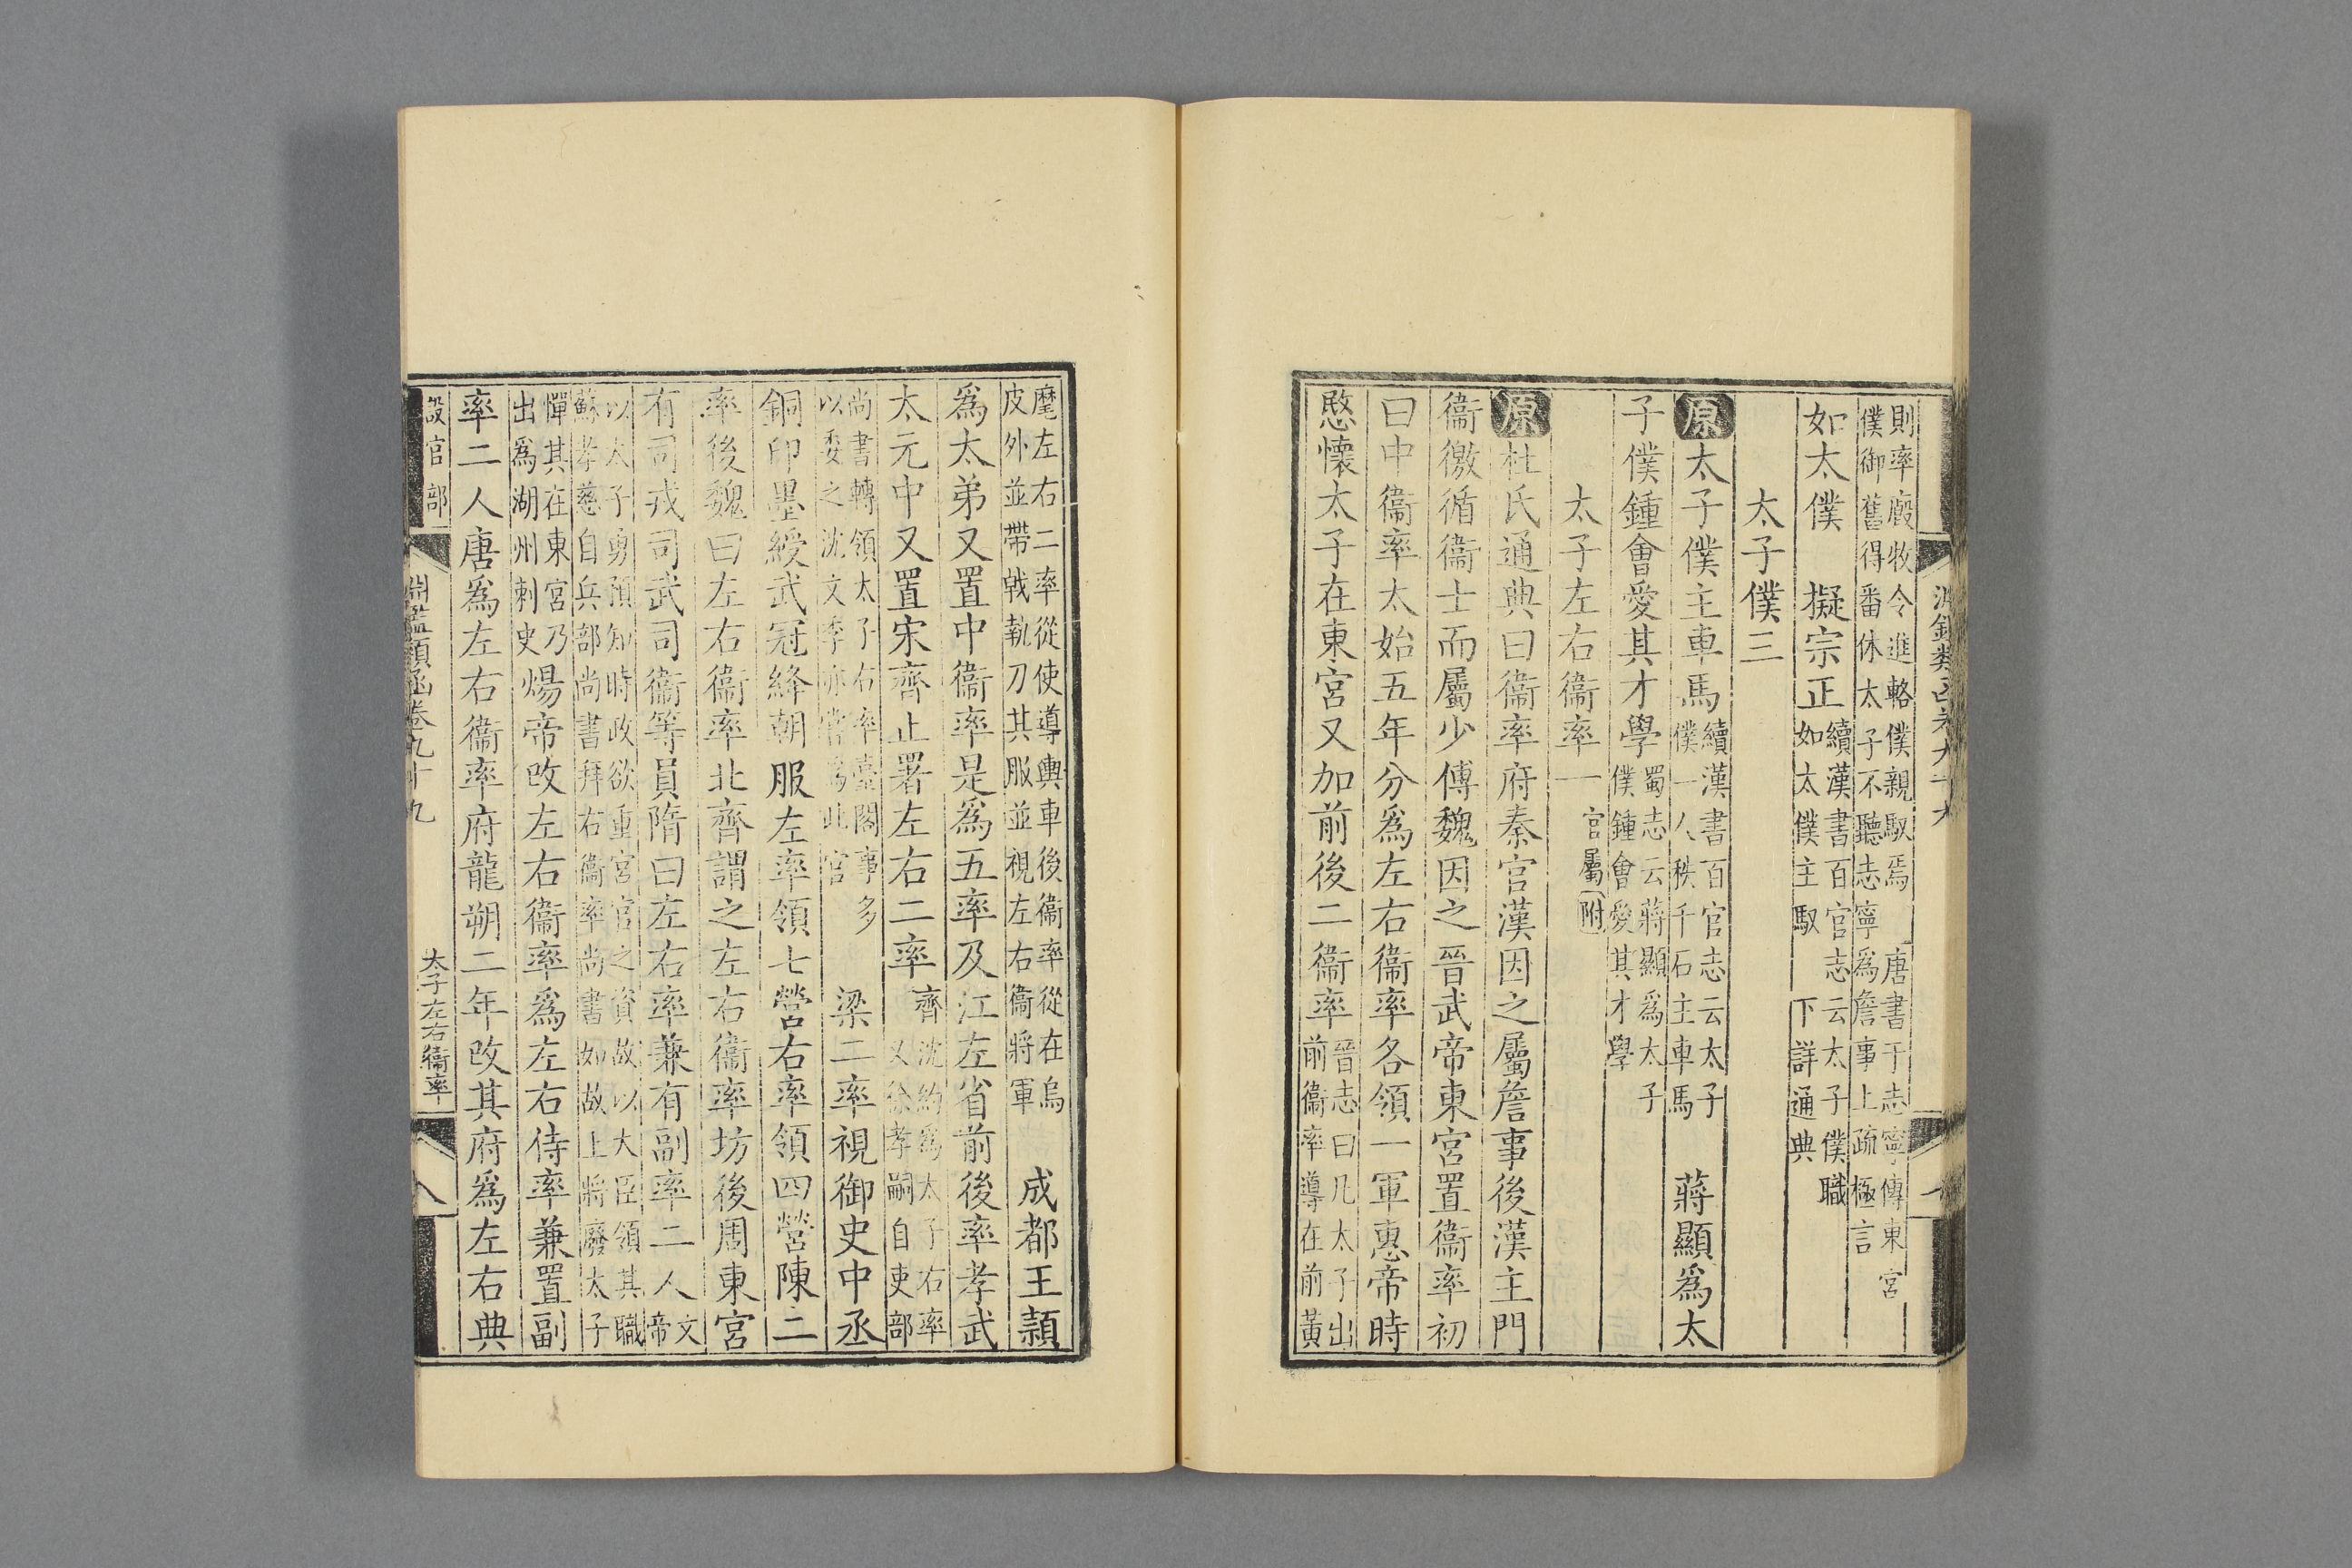 則率廄牧令進輅僕親馭焉　唐書于志寧傳東宮
僕御舊得番休太子不聽志寧爲詹事上疏極言
如太僕　擬宗正
續漢書百官志云太子僕職
如太僕主馭　下詳通典
太子僕三
原太子僕主車馬
續漢書百官志云太子
僕一人秩千石主車馬
蔣顯爲太
子僕鍾會愛其才學
蜀志云蔣顯爲太子
僕鍾會愛其才學
太子左右衞率一
官屬附
原杜氏通典曰衞率府秦官漢因之屬詹事後漢主門
衞徼循衞士而屬少傅魏因之晉武帝東宮置衞率初
曰中衞率太始五年分爲左右衞率各領一軍惠帝時
愍懷太子在東宮又加前後二衞率
晉志曰凡太子出
前衞率導在前黃
麾左右二率從使導輿車後衞率從在烏
皮外並帶戟執刀其服並視左右衞將軍
成都王穎
爲太弟又置中衞率是爲五率及江左省前後率孝武
太元中又置宋齊止署左右二率
齊沈約爲太子右率
又徐孝嗣自吏部
尚書轉領太子右率臺閣事多
以委之沈文季亦嘗爲此官
梁二率視御史中丞
銅印墨綬武冠絳朝服左率領七營右率領四營陳二
率後魏曰左右衞率北齊謂之左右衞率坊後周東宮
有司戎司武司衞等員隋曰左右率兼有副率二人
文
帝
以太子勇預知時政欲重宮官之資故以大臣領其職
蘇孝慈自兵部尚書拜右衞率尚書如故上將廢太子
憚其在東宮乃
出爲湖州刺史
煬帝改左右衞率爲左右侍率兼置副
率二人唐爲左右衞率府龍朔二年改其府爲左右典
設官部
淵鑑類函卷九十九
太子左右衞率
八